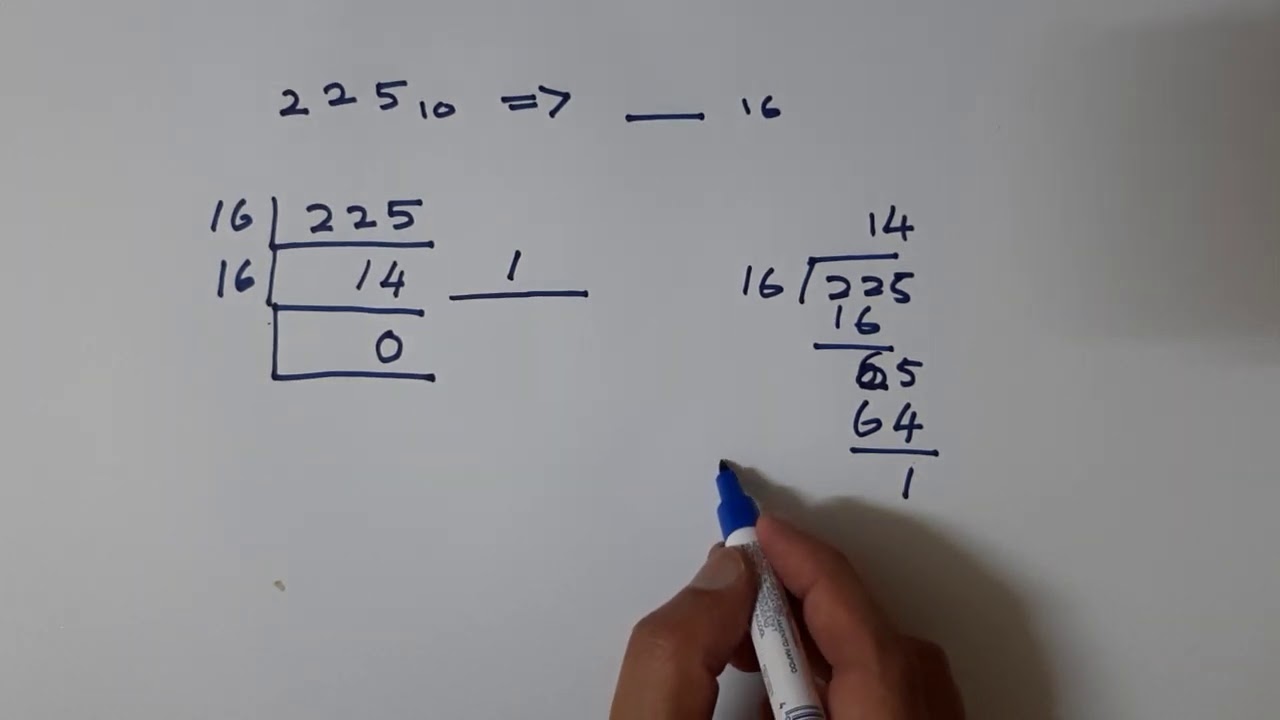 225₁₀ => ___ 16
16 | 225
16 | 14 1
0
14
16 ) 225
16
65
64
1